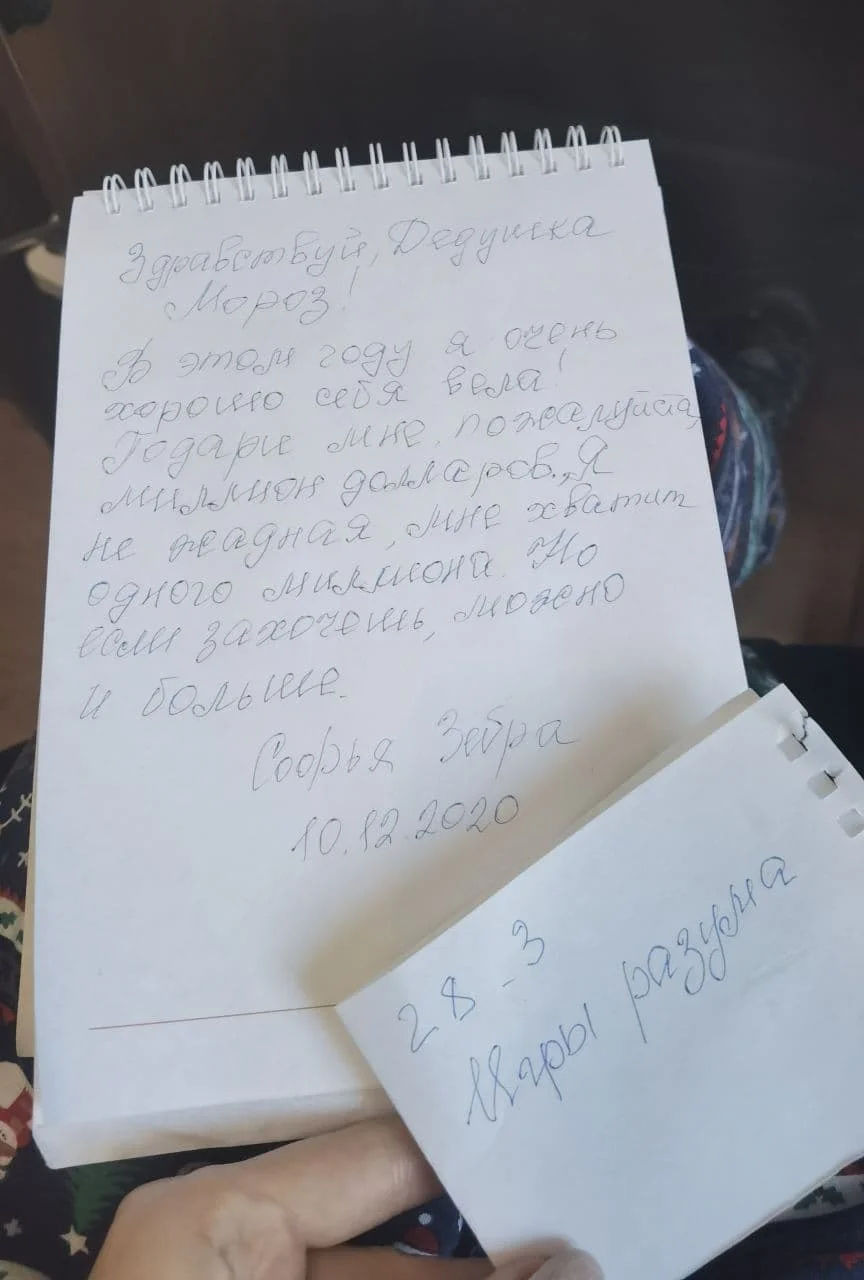 Здравствуй, Дедушка
Мороз!
В этом году я очень
хорошо себя вела!
Подари мне, пожалуйста,
миллион долларов. Я
не жадная, мне хватит
одного миллиона. Но
если захочешь, можно
и больше.
Софья Зебра
10.12.2020
28-3
Игры разума